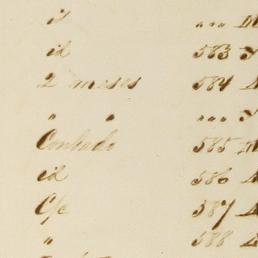 id „ „ „
id 583
2 meses 584
„ „ „ „ „
Contado 585
id 586
C/c 587
„ 588